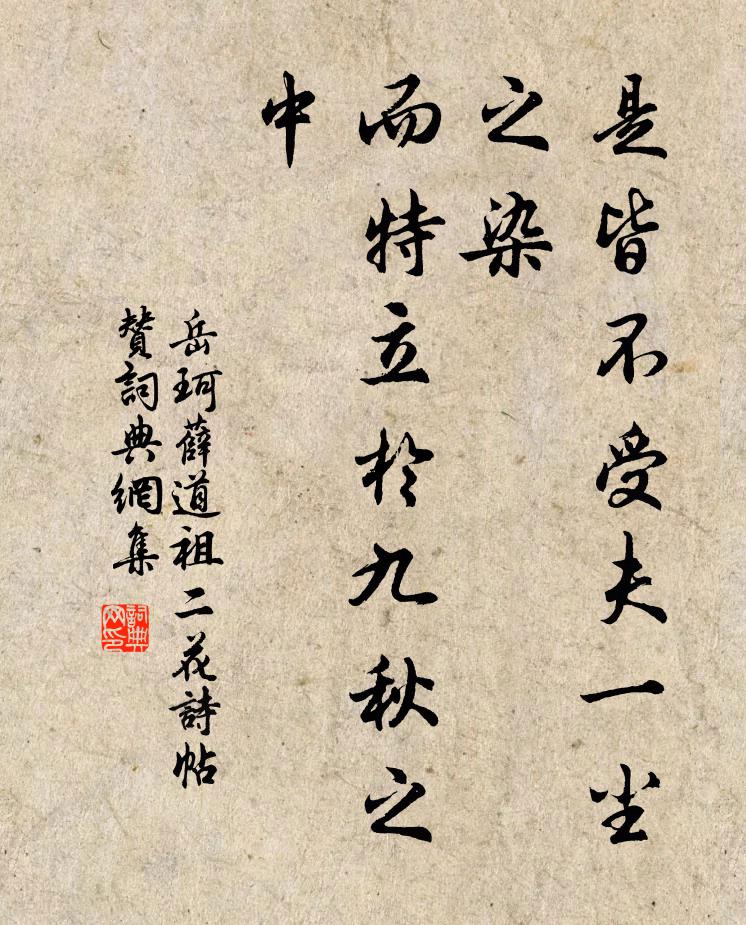 是皆不受夫一尘
之染
而特立於九秋之
中
岳珂薛道祖二花詩帖
贊詞典網集
詞典
网印